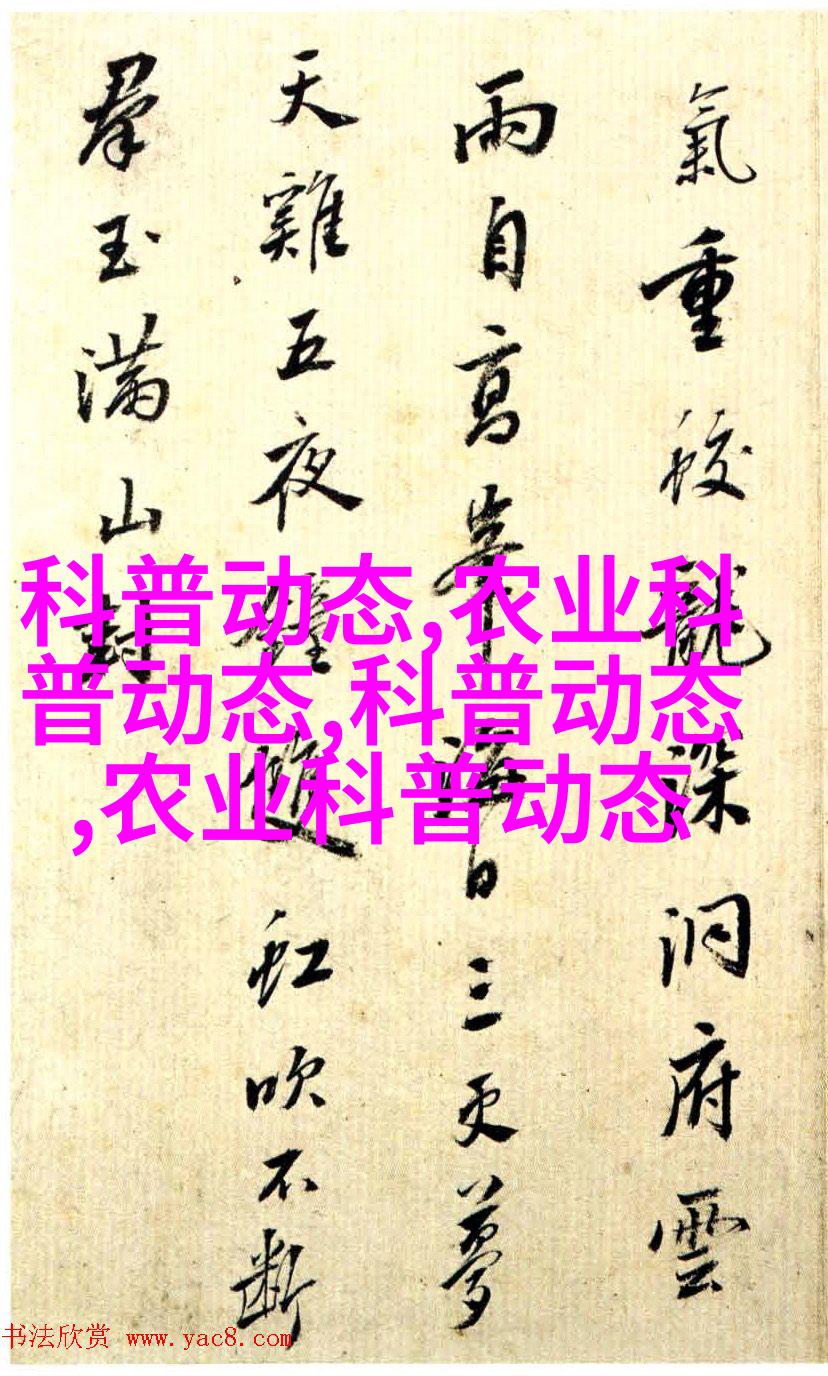 氣重蛟龍深洞府雲
雨自高峯海日三更夢
天雞五夜鐘雌虹吹不斷
羣玉滿山封
科普动态,农业科
普动态,科普动态
,农业科普动态
书法欣赏 www.yac8.com